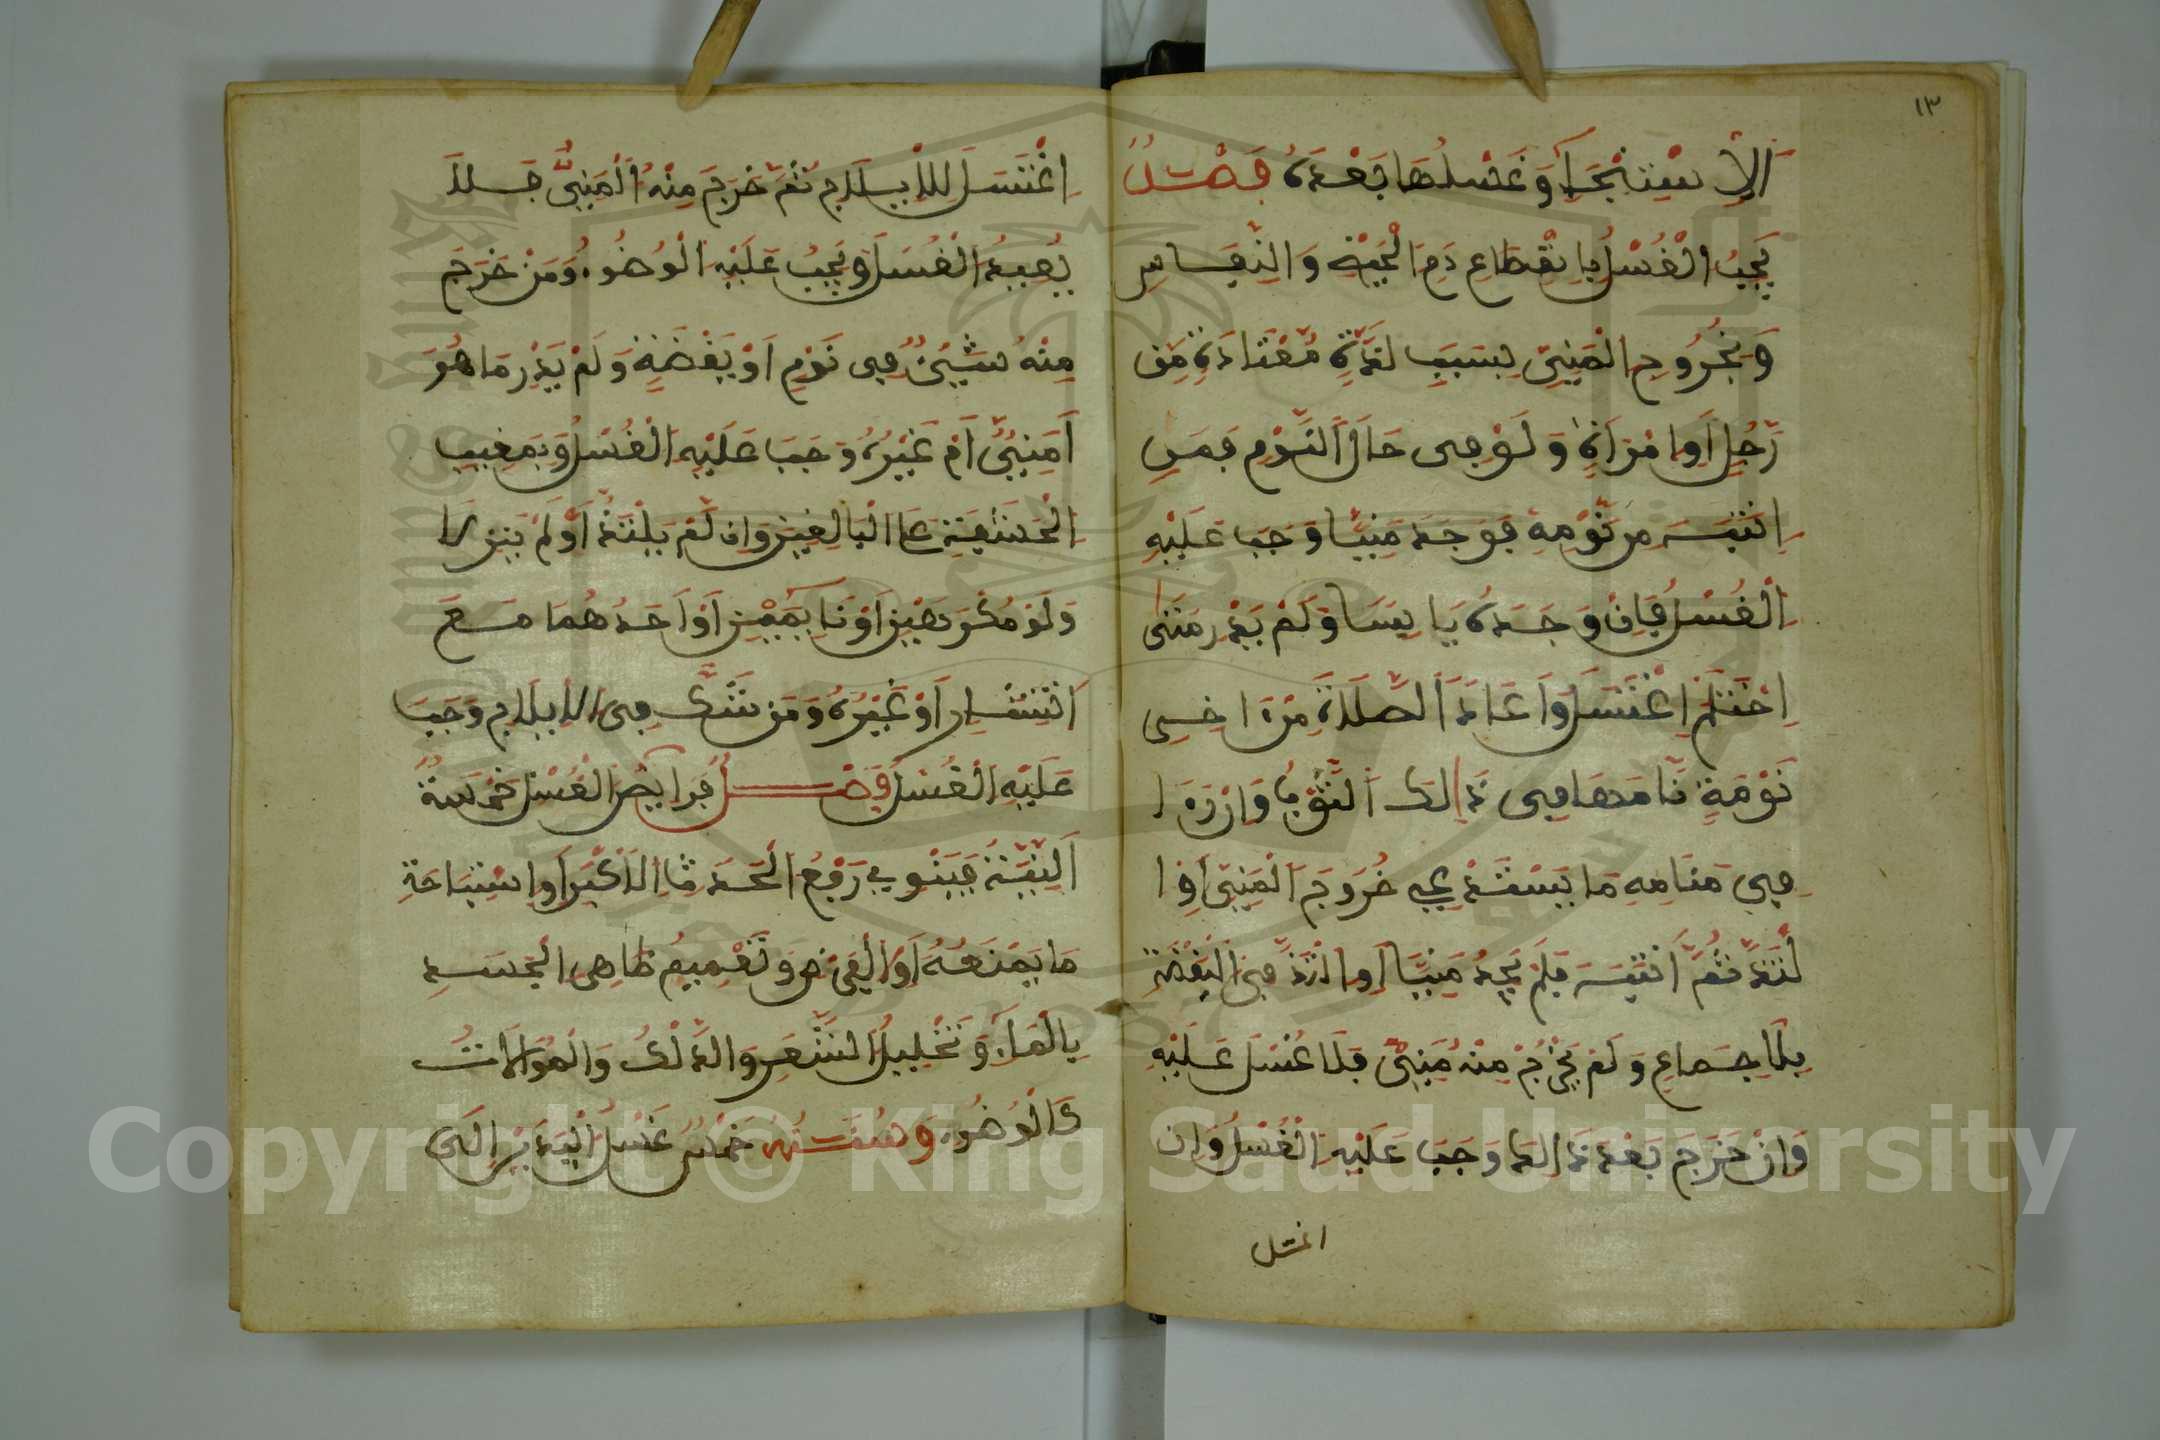 ١٣
اَلِاسْتِنْجَاءِ وَغَسْلُهَا بَعْدَهُ فَصْلٌ
يَجِبُ الْغُسْلُ بِانْقِطَاعِ دَمِ الْحَيْضِ وَالنِّفَاسِ
وَبِخُرُوجِ الْمَنِيِّ بِسَبَبِ لَذَّةٍ مُعْتَادَةٍ مِن
رَّجُلٍ اَوِ امْرَاَةٍ وَلَوْ فِى حَالِ النَّوْمِ فَمَنِ
انْتَبَهَ مِن نَّوْمِهِ فَوَجَدَ مَنِيًّا وَجَبَ عَلَيْهِ
الْغُسْلُ فَاِنْ وَجَدَهُ يَابِسًا وَلَمْ يَدْرِ مَتَى
احْتَلَمَ اغْتَسَلَ وَاَعَادَ الصَّلَاةَ مِنْ اخِرِ
نَوْمَةٍ نَّامَهَا فِى ذَالِكَ الثَّوْبِ وَاِنْ رَءَا
فِى مَنَامِهِ مَا يَسْتَدْعِى خُرُوجَ الْمَنِيِّ اَوِ ا
لْتَذَّ ثُمَّ انْتَبَهَ فَلَمْ يَجِدْ مَنِيًّا اَوِ الْتَذَّ فِى الْيَقْظَةِ
بِلَا جِمَاعٍ وَلَمْ يَخْرُجْ مِنْهُ مَنِيٌّ فَلَا غُسْلَ عَلَيْهِ
وَاِنْ خَرَجَ بَعْدَ ذَالِكَ وَجَبَ عَلَيْهِ الْغُسْلُ وَاِن
اغتسل
اغْتَسَلَ لِلْاِيلَاجِ ثُمَّ خَرَجَ مِنْهُ الْمَنِيُّ فَلَا
يُعِيدُ الْغُسْلَ وَيَجِبُ عَلَيْهِ الْوُضُوءُ وَمَنْ خَرَجَ
مِنْهُ شَيْئٌ فِى نَوْمٍ اَوْ يَقْظَةٍ وَلَمْ يَدْرِ مَا هُوَ
اَمَنِيٌّ اَمْ غَيْرُهُ وَجَبَ عَلَيْهِ الْغُسْلُ وَبِمَغِيبِ
الْحَشَفَةِ عَلَى الْبَالِغِينَ وَاِن لَّمْ يَلْتَذَّ اَوْ لَمْ يَنْزِلَا
وَلَوْ مُكْرَهَيْنِ اَوْ نَايِمَيْنِ اَوْ اَحَدُهُمَا مَعَ
انْتِشَارٍ اَوْ غَيْرُهُ وَمَن شَكَّ فِى الْاِيلَاجِ وَجَبَ
عَلَيْهِ الْغُسْلُ فَصْلٌ فَرَايِضُ الْغُسْلِ خَمْسَةٌ
اَلنِّيَّةُ فَيَنْوِى رَفْعَ الْحَدَثِ الْاَكْبَرِ اَوِ اسْتِبَاحَةِ
مَا يَمْنَعُهُ اَوِ الْفَرْضِ وَتَعْمِيمُ ظَاهِرِ الْجَسَدِ
بِالْمَاءِ وَتَخْلِيلُ الشَّعَرِ وَالدَّلْكُ وَالْمُوَالَاتُ
كَالْوُضُوءِ وَسُنَنُهُ خَمْسٌ غَسْلُ الْيَدَيْنِ اِلَى
Copyright © King Saud University